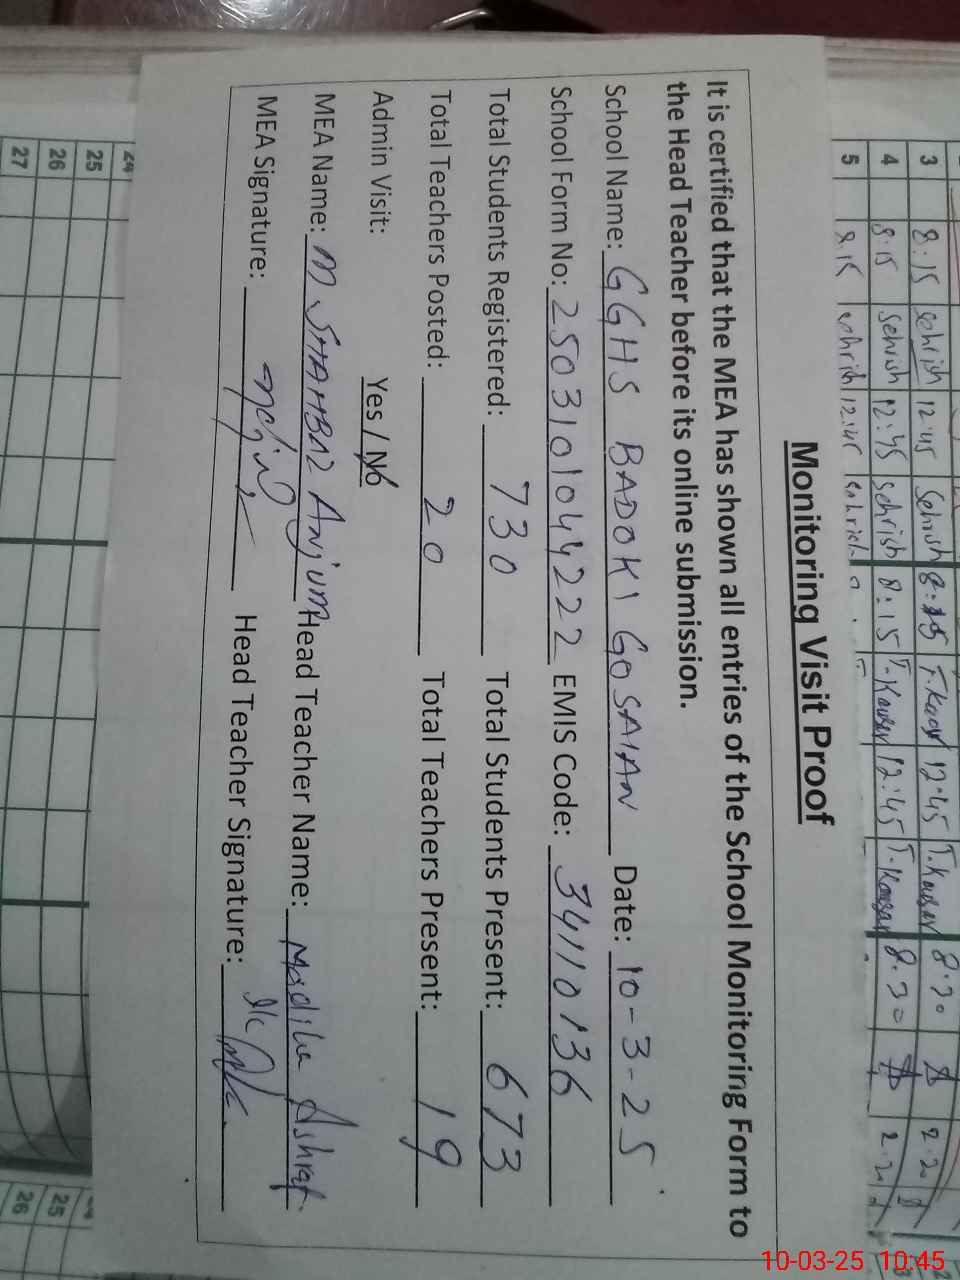 Monitoring Visit Proof
It is certified that the MEA has shown all entries of the School Monitoring Form to
the Head Teacher before its online submission.
School Name: GGHS BADOKI GOSAIAN Date: 10-3-25
School Form No: 2503101044222 EMIS Code: 34110136
Total Students Registered: 730 Total Students Present: 673
Total Teachers Posted: 20 Total Teachers Present: 19
Admin Visit: Yes / No
MEA Name: M SHAHBAZ Anjum Head Teacher Name: Madiha Ashraf
MEA Signature: Head Teacher Signature:
3 8:15 Sehrish 12:45 Sehrish 8:15 T.Kausar 12:45 T.Kausar 8.30 2.20
4 8:15 Sehrish 12:45 Sehrish 8:15 T.Kausar 12:45 T.Kausar 8.30 2.20
5 8.15 Sehrish 12:45 Sehrish
24
25
26
27
25
26
10-03-25 10:45